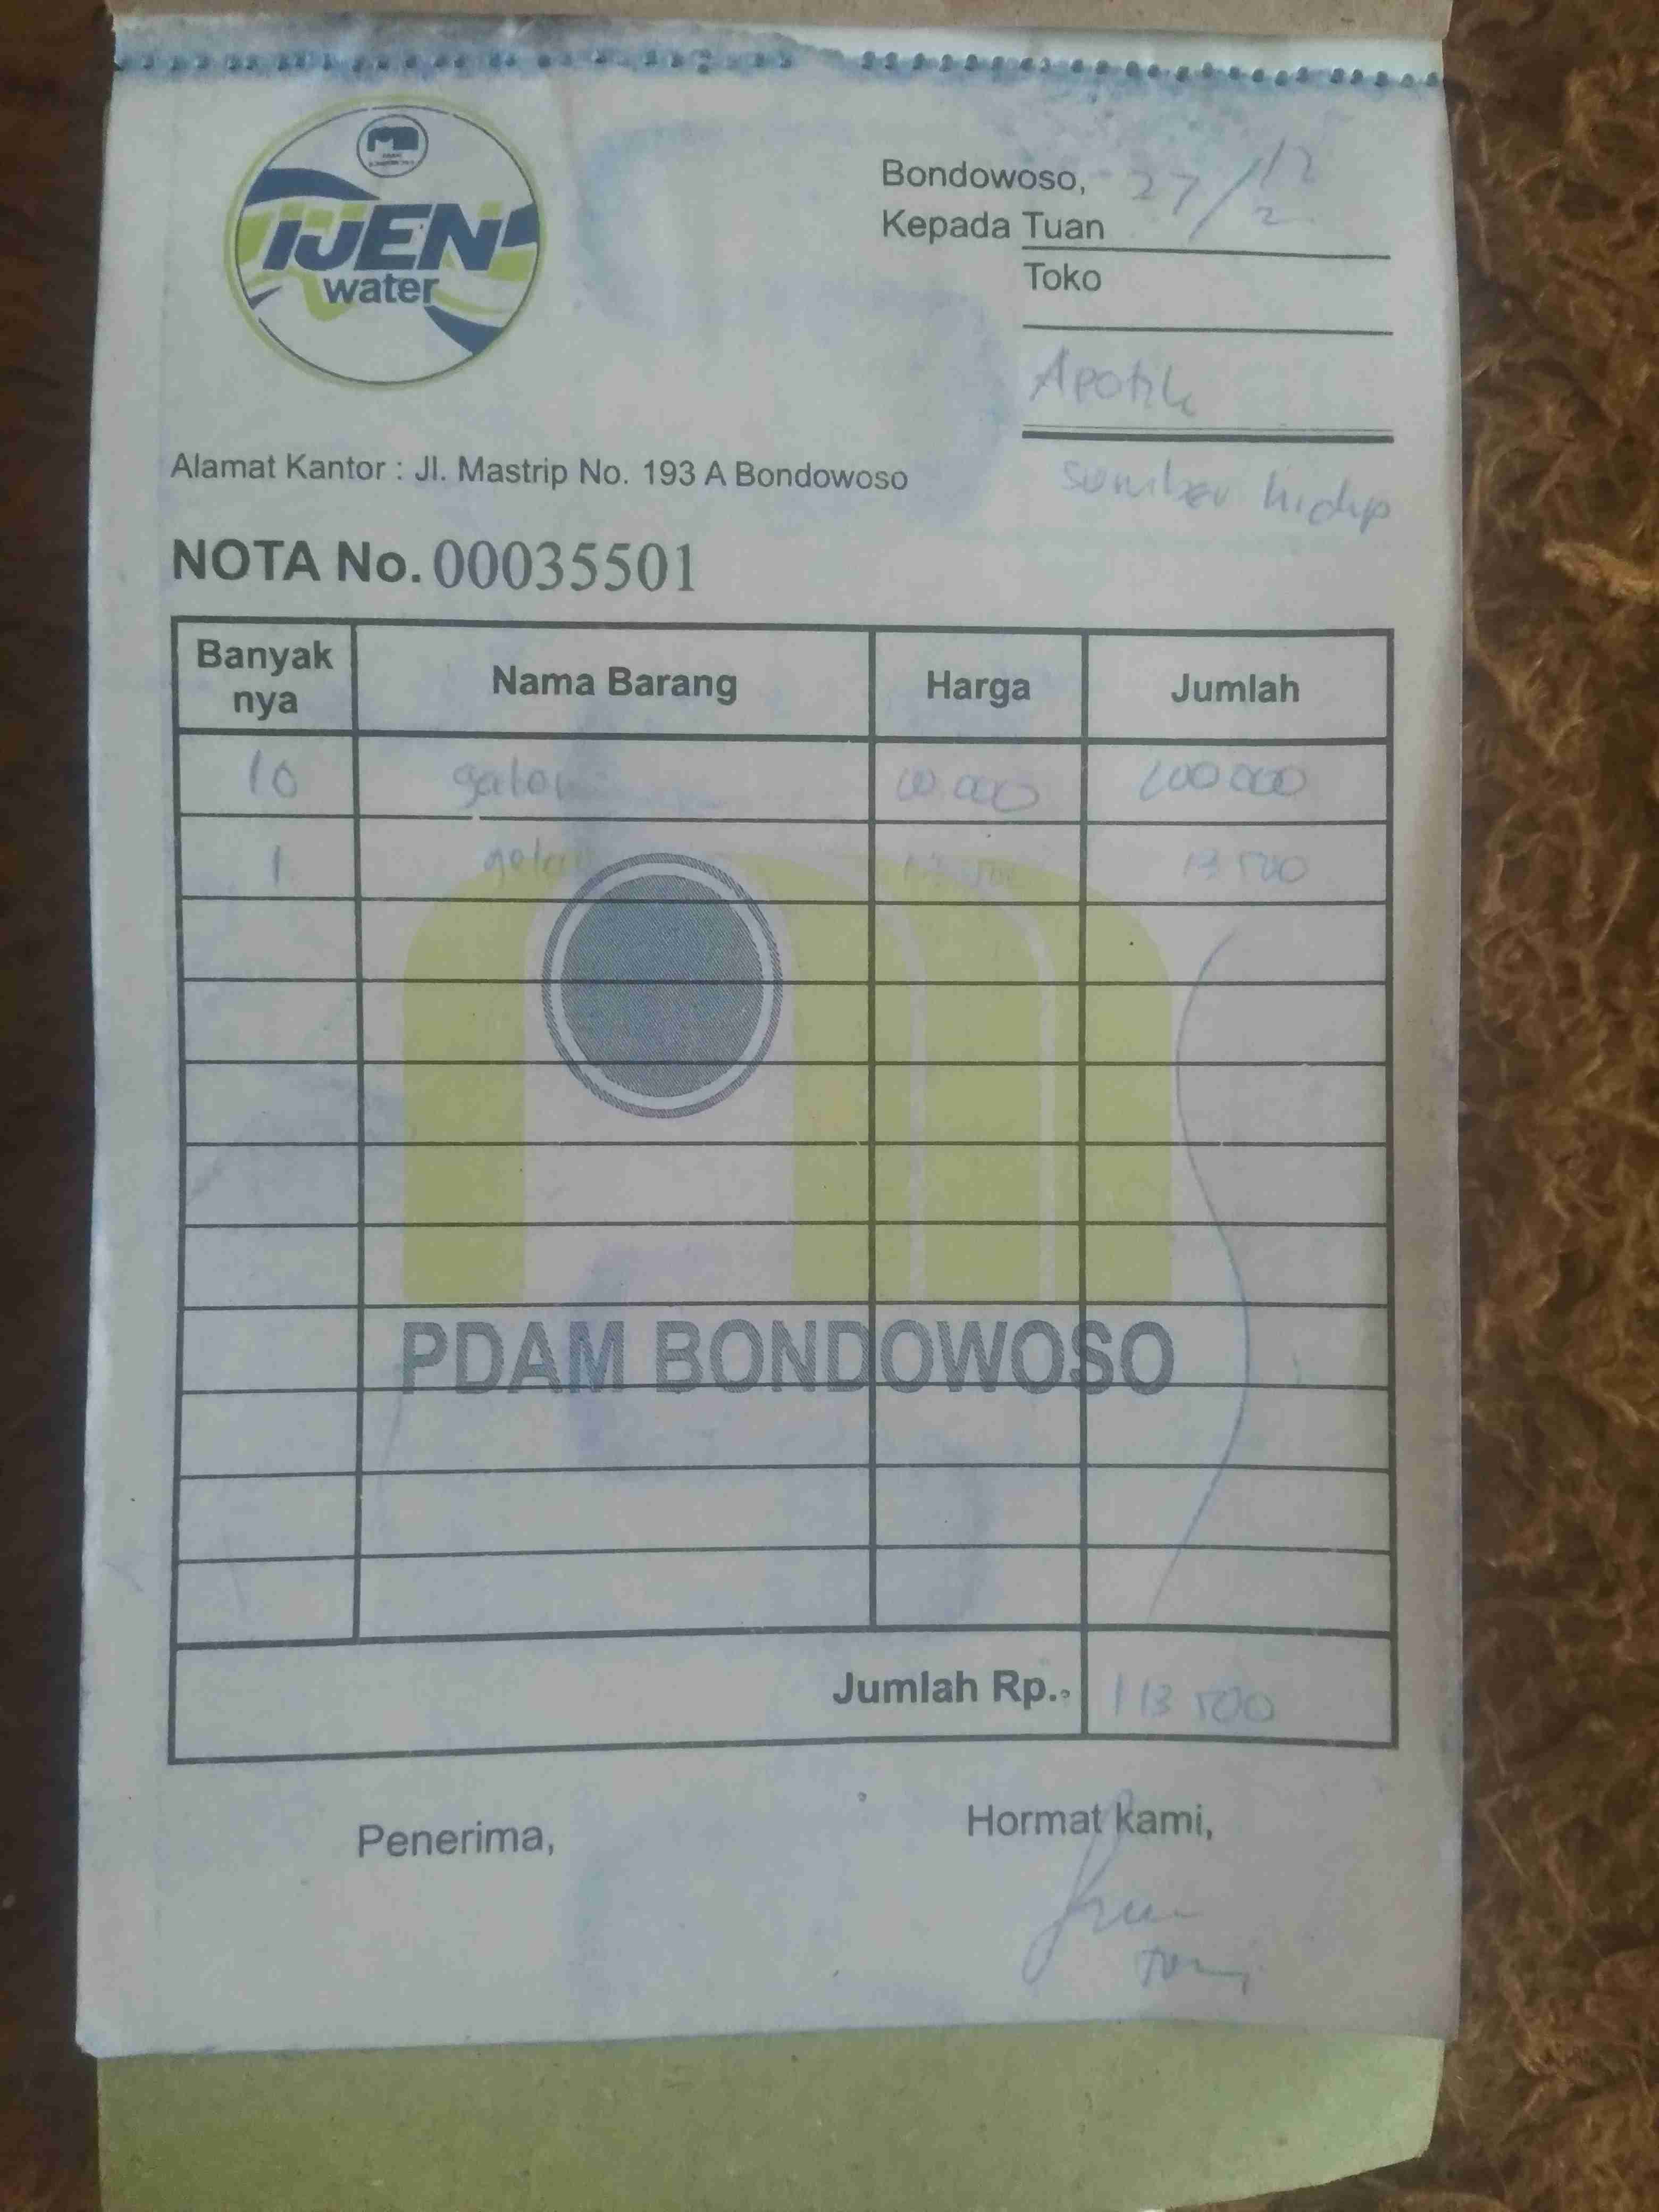 IJEN
water
Bondowoso, 27/12
Kepada Tuan
Toko
Apotik
sumber hidup
Alamat Kantor : Jl. Mastrip No. 193 A Bondowoso
NOTA No. 00035501
Banyak nya Nama Barang Harga Jumlah
10 galon 10.000 100 000
1 galon 13 500 13 500
PDAM BONDOWOSO
Jumlah Rp. 113 500
Penerima, Hormat kami,